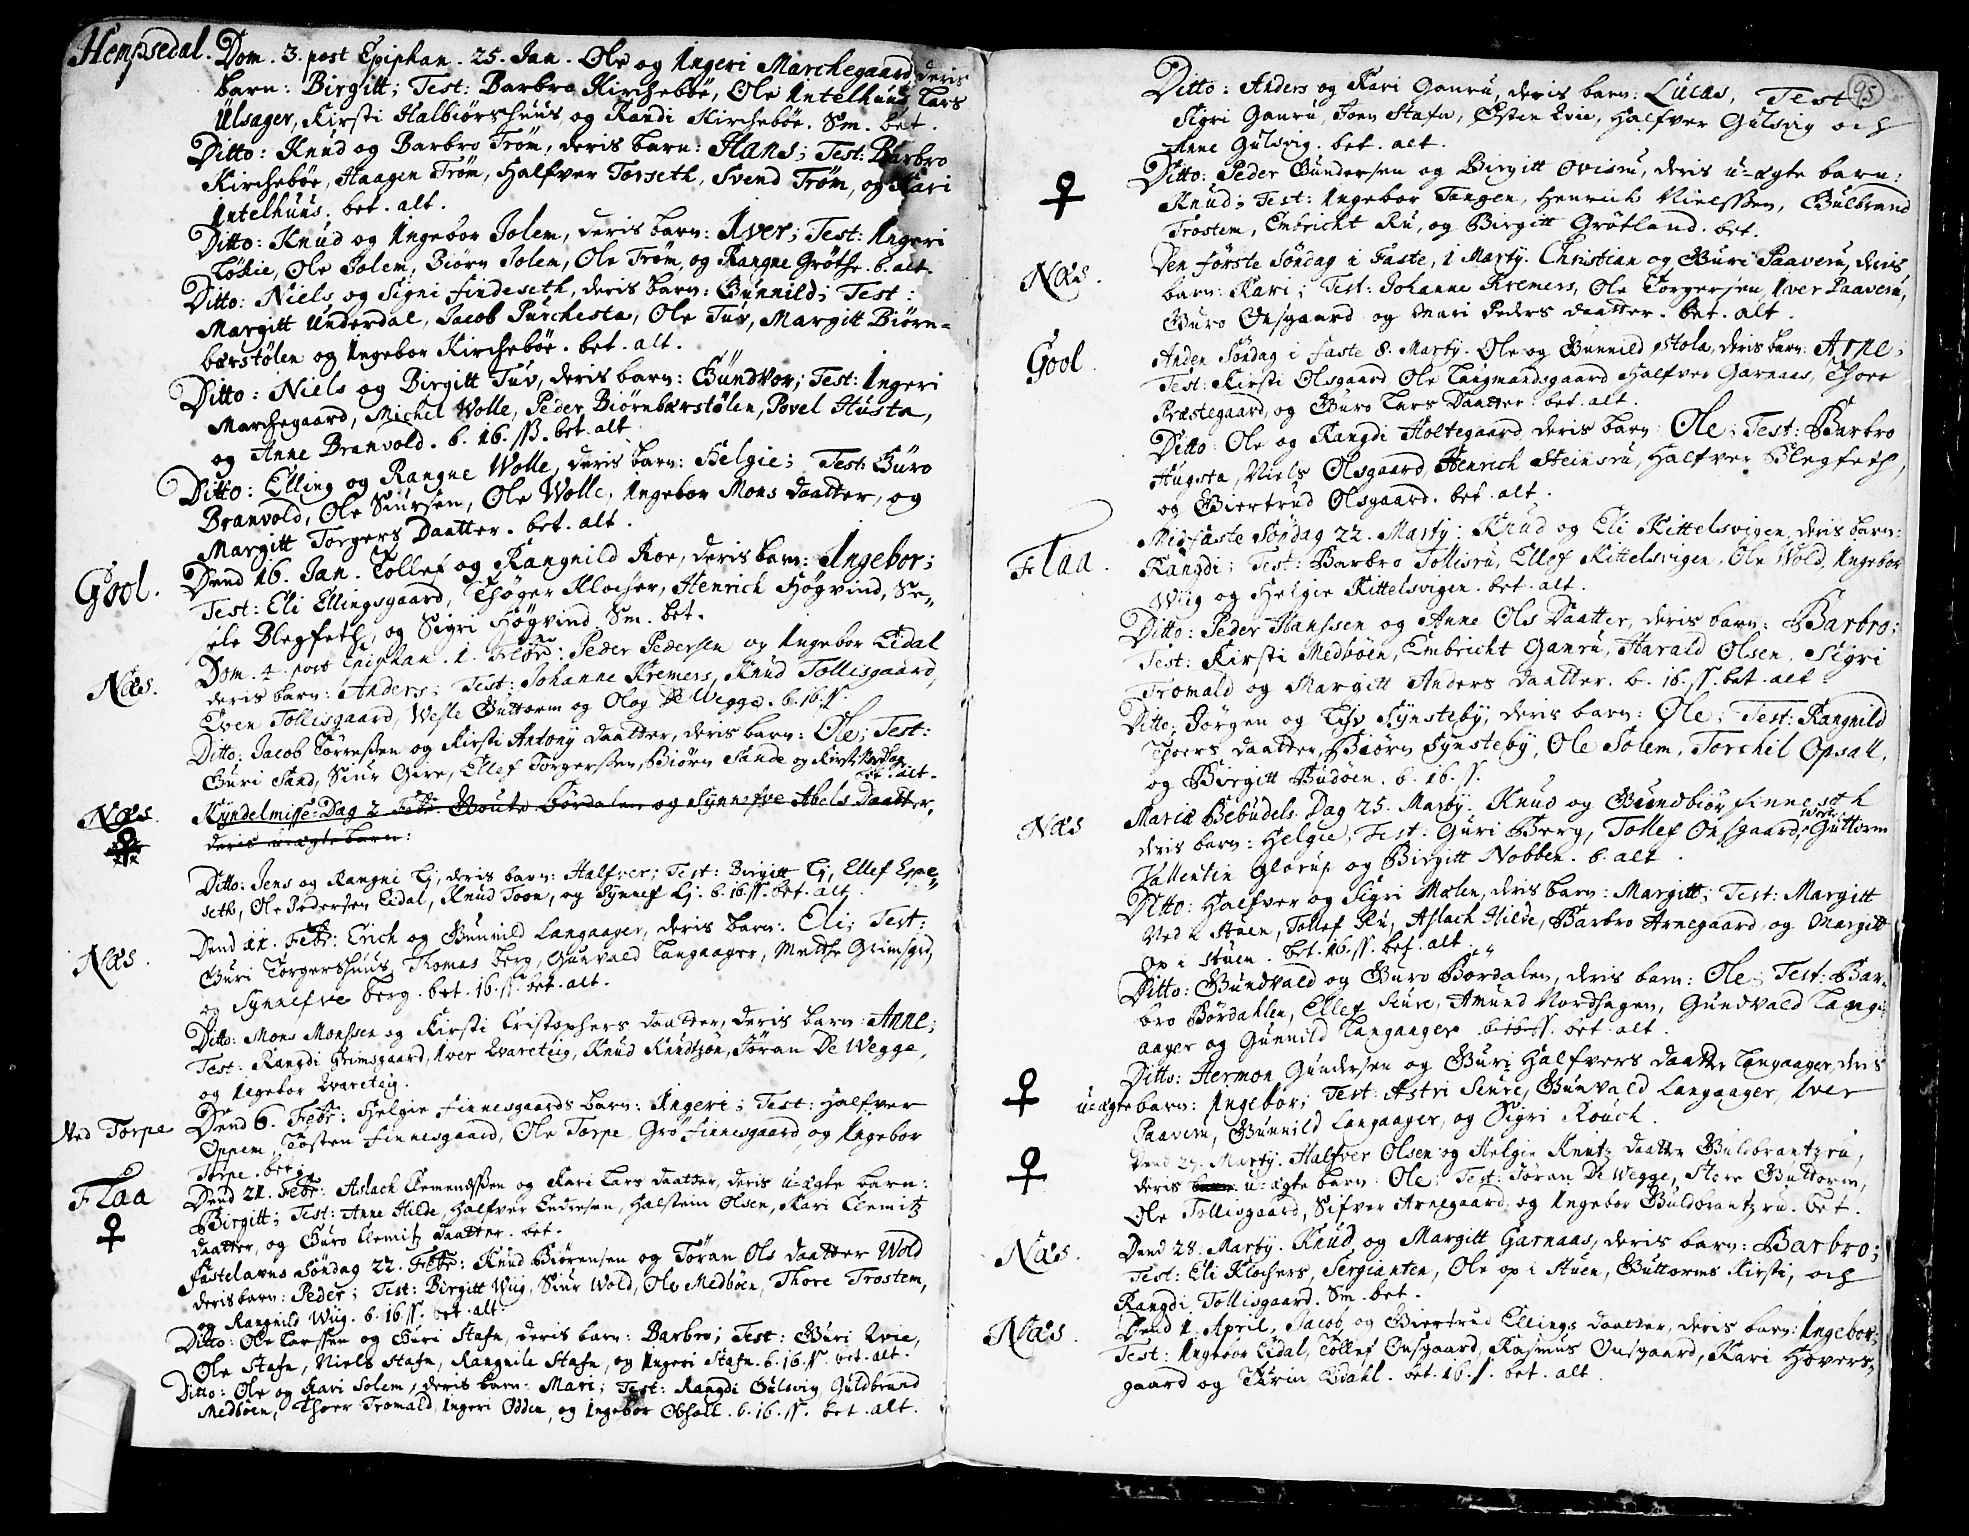 Hempsedal. Dom. 3. post Epiphan. 25. Jan. Ole og Ingeri Marchegaard, deris
barn: Birgitt; Test: Barbro Kirchebøe, Ole Intelhuus, Lars
Ulsager, Kirsti Halbiørshuus og Randi Kirchebøe. Sm. bet.
Ditto: Knud og Barbro Trøm, deris barn: Hans; Test: Barbro
Kirchebøe, Haagen Trøm, Halfver Torseth, Svend Trøm, og Kari
Intelhuus. bet. alt.
Ditto: Knud og Ingebor Solem, deris barn: Iver; Test: Ingeri
Løkie, Ole Solem, Biørn Solem, Ole Trøm, og Rangne Grøthe. b. alt.
Ditto: Niels og Signi findeseth, deris barn: Gunnild; Test:
Margitt Underdal, Jacob Purchesta, Ole Tuv, Margitt Biørn-
bærstølen og Ingebor Kirchebøe. bet. alt.
Ditto: Niels og Birgitt Tuv, deris barn: Gundvor; Test: Ingeri
Marchegaard, Michel Wolle, Peder Biørnbærstølen, Povel Husta,
og Anne Branvold. b. 16. ss. bet. alt
Ditto: Elling og Rangne Wolle, deris barn: Helgie; Test: Guro
Branvold, Ole Siursen, Ole Wolle, Ingebor Mons daatter, og
Margitt Torgers Daatter. bet. alt.
Gool. Dend 16. Jan. Tollef og Rangnild Roe, deris barn: Ingebor;
Test: Eli Ellingsgaard, Thøger Klocher, Henrich Høgvind, Se-
sele Blegfeth, og Sigri Høgvind. Sm. bet.
Næs. Dom. 4. post Epiphan. 1. Febr: Peder Pedersen og Ingebor Eidal
deris barn: Anders; Test: Johanne Kremers, Knud Tollisgaard,
Even Tollisgaard, Wesle Guttorm og Oloy De Wegge. b. 16. ss
Ditto: Jacob Torressen og Kirsti Antony daatter, deris barn: Ole; Test:
Guri Sand, Siur Gire, Ellef Torgerssen, Biørn Sande og Kirsti
bet. alt.
Næs. Kyndelmisse-Dag 2 Febr. Bordalen og Synnefve Abels Daatter,
deris u-ægte barn:
Ditto: Jens og Rangni Li, deris barn: Halfver; Test: Birgitt Li, Ellef Espe-
seth, Ole Pedersen Eidal, Knud Toon, og Synnef Li. b. 16 ss. bet. alt.
Næs. Dend 11. Febr: Erich og Gunnild Langaager, deris barn: Eli; Test:
Guri Torgershuus, Thomas Berg, Gunvald Langaager, Metthe Grimsgrd,
og Synnefve berg. bet. 16. ss. bet. alt.
Ditto: Mons Monssen og Kirsti Cristophers daatter, deris barn: Anne;
Test: Rangdi Grimsgaard, Iver Qvareteig, Knud Knudtzøn, Jøran De Wegge,
og Ingebor Qvareteig.
Ved Torpe Dend 6. Febr: Helgie Finnesgaards barn: Ingeri; Test: Halfver
Oppem, Tosten Finnesgaard, Ole Torpe, Gro Finnesgaard og Ingebor
Torpe. bet.
Flaa Dend 21. Febr: Aslach Clemendssen og Kari Lars daatter, deris u-ægte barn:
Birgitt; Test: Anne Hilde, Halfver Endresen, Halstein Olsen, Kari Clemitz
daatter, og Guro Clemitz daatter. bet.
Fastelavns Søndag 22. Febr: Knud Biørensen og Tøran Ols daatter Wold
deris barn: Peder; Test: Birgitt Wiig, Siur Wold, Ole Medbøen, Thore Trostem,
og Rangnild Wiig. b. 16 ss. bet. alt
Ditto: Ole Larssen og Guri Stafn, deris barn: Barbro; Test: Guri Qvie,
Ole Stafn, Niels Stafn, Rangnile Stafn, og Ingeri Stafn. b. 16. ss. bet. alt.
Ditto: Ole og Kari Solem, deris barn: Mari; Test: Rangdi Gulsvig, Guldbrand
Medbøen, Thoer Tromald, Ingeri Odden, og Ingebor Obsall. b. 16. ss. bet. alt.
95
Ditto: Anders og Kari Ganru, deris barn: Lucas, Test
Sigri Ganru, Joen Stafn, Østen Qvie, Halfver Gulsvig och
Anne Gulsvig. bet. alt.
Ditto: Peder Gundersen og Birgitt Ovisru, deris u-ægte barn:
Knud; Test: Ingebor Tangen, Henrich Nielssen, Gulbrand
Trostem, Embricht Ru, og Birgitt Grøtland. bet.
Næs. Den første Søndag i Faste, 1 Marty. Christian og Guri Paaveru, deris
barn: Kari; Test: Johanne Kremers, Ole Torgersen, Iver Paaveru,
Guro Onsgaard og Mari Peders daatter. bet. alt.
Gool. Anden Søndag i faste 8. Marty. Ole og Gunnild Stola, deris barn: Arne;
Test: Kirsti Olsgaard, Ole Laugmandsgaard, Halfver Garnaas, Thore
Præstegaard, og Guro Lars Daatter. bet. alt.
Ditto: Ole og Rangdi Holtegaard, deris barn: Ole; Test: Barbro
Hugsta, Niels Olsgaard, Henrich Steinsru, Halfver Blegfeth,
og Giertrud Olsgaard. bet. alt.
Flaa. Midfaste Søndag 22. Marty: Knud og Eli Kittelsvigen, deris barn:
Rangdi; Test: Barbro Tollisru, Ellef Kittelsvigen, Ole Wold, Ingebor
Wiig og Helgie Kittelsvigen. bet. alt.
Ditto: Peder Hanssen og Anne Ols Daatter, deris barn: Barbro;
Test: Kirsti Medbøen, Embricht Ganru, Harald Olsen, Sigri
Tromald og Margitt Anders daatter. b. 16. ss. bet. alt
Ditto: Jørgen og Liv Synsteby, deris barn: Ole; Test: Rangnild
Thoers daatter, Biørn Synsteby, Ole Solem, Torchil Opsall,
og Birgitt Budøen. b. 16. ss.
Næs Mariæ Bebudels. Dag 25. Marty. Knud og Gundbiøy finneseth
deris barn: Helgie; Test: Guri Berg, Tollef Onsgaard, Wesle Guttorm
Vallentin Glarup og Birgitt Nobben. b. alt.
Ditto: Halfver og Sigri Mælen, deris barn: Margitt; Test: Margitt
Ved i Stuen, Tollef Ru, Aslach Hilde, Barbro Arnegaard og Margitt
Op i Stuen. bet. 16. ss. bet. alt
Ditto: Gundvald og Guro Bordalen, deris barn: Ole; Test: Bar-
bro Børdahlen, Ellef Siure, Amund Nordhagen, Gundvald Lang-
aager og Gunnild Langaager. b. 16. ss. bet. alt.
Ditto: Hermon Gundersen og Guri Halfvers daatter Langaager, deris
u-ægte barn: Ingebor; Test: Astri Seure, Gunvald Langaager, Iver
Paaveru, Gunnild Langaager, og Sigri Rouch.
Dend 27. Marty. Halfver Olsen og Helgie Knutz daatter Guldbrantzru,
deris barn u-ægte barn: Ole; Test: Jøran De Wegge, Store Guttorm,
Ole Tollisgaard, Sifver Arnegaard, og Ingebor Guldbrantzru. bet.
Næs. Dend 28. Marty. Knud og Margitt Garnaas, deris barn: Barbro;
Test: Eli Klochers, Sergianten, Ole op i Stuen, Guttorms Kirsti, och
Rangdi Tollisgaard. Sm. bet.
Næs. Dend 1. April, Jacob og Giertrud Ellings daatter, deris barn: Ingebor;
Test: Ingebor Eidal, Tollef Onsgaard, Rasmus Onsgaard, Kari Hovers-
gaard og Karin Edahl. bet. 16. s. bet. alt.